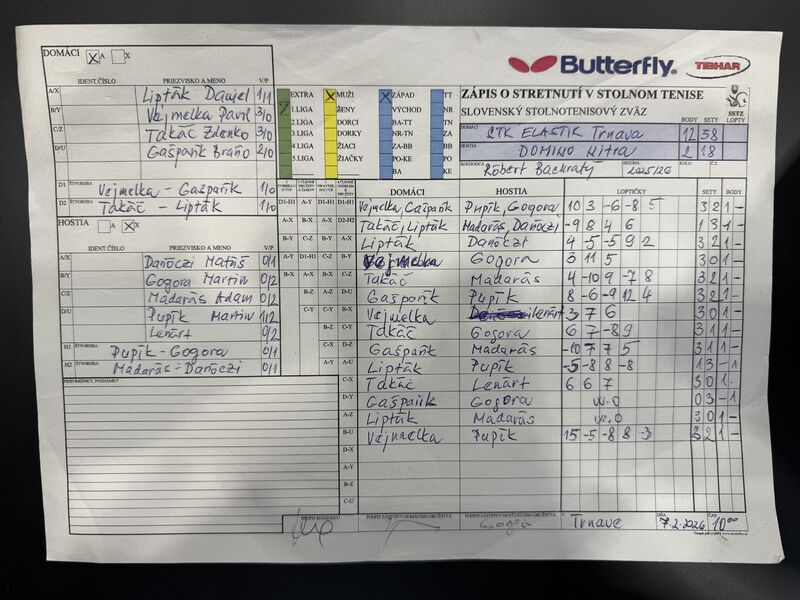 DOMÁCI X A X
Butterfly
TIBHAR
IDENT.ČÍSLO PRIEZVISKO A MENO V/P
ZÁPIS O STRETNUTÍ V STOLNOM TENISE
SLOVENSKÝ STOLNOTENISOVÝ ZVÄZ
SSTZ
BODY SETY LOPTY
A/X Lipták Daniel 1/1
B/Y Vejmelka Pavil 3/0
C/Z Takáč Zdenko 3/0
D/U Gašparík Braňo 2/0
D1 ŠTVORHRA Vejmelka - Gašparík 1/0
D2 Takáč - Lipták 1/0
EXTRA MUŽI ZÁPAD TT
1.LIGA ŽENY VÝCHOD NR
2.LIGA DORCI BA-TT TN
3.LIGA DORKY NR-TN ZA
4.LIGA ŽIACI ZA-BB BB
5.LIGA ŽIAČKY PO-KE PO
BA KE
DOMÁCI STK ELASTIK Trnava 12 58
HOSTIA DOMINO Nitra 2 18
ROZHODCA Róbert Backratý SEZÓNA 2025/26 KOLO Č.Z.
HOSTIA A X X
IDENT.ČÍSLO PRIEZVISKO A MENO V/P
A/X Danóczi Matúš 0/1
B/Y Gogora Martin 0/2
C/Z Madarás Adam 0/2
D/U Pupík Martin 1/2
Lenárt 0/2
H1 ŠTVORHRA Pupík - Gogora 0/1
H2 Madarás - Danóczi 0/1
PRIPOMIENKY, POZNÁMKY
DOMÁCI HOSTIA LOPTIČKY SETY BODY
D1-H1 A-Y D1-H1 D1-H1 Vejmelka, Gašparík Pupík, Gogora 10 3 -6 -8 5 3 2 1 -
A-X B-X A-X D2-H2 Takáč, Lipták Madarás, Danóczi -9 8 4 6 3 1 1 -
B-Y C-Z B-Y A-X Lipták Danóczi 4 -5 -5 9 2 3 2 1 -
A-Y D1-H1 C-Z B-Y Vejmelka Gogora 3 11 5 3 0 1 -
B-X A-X D1-H1 C-Z Takáč Madarás 4 -10 9 -7 8 3 2 1 -
Gašparík Pupík 8 -6 -9 12 4 3 2 1 -
Vejmelka Lenárt 3 7 6 3 0 1 -
Takáč Gogora 6 7 -8 9 3 1 1 -
Gašparík Madarás -10 7 7 5 3 1 1 -
Lipták Pupík -5 -8 8 -8 1 3 - 1
C-X Takáč Lenárt 6 6 7 3 0 1 -
D-Y Gašparík Gogora w.o 0 3 - 1
A-Z Lipták Madarás w.o 3 0 1 -
B-U Vejmelka Pupík 15 -5 -8 8 3 3 2 1 -
D-X
A-Y
B-Z
C-U
PODPIS ROZHODCU PODPIS ZÁSTUPCU DOMÁCEHO DRUŽSTVA PODPIS ZÁSTUPCU HOSŤUJÚCEHO DRUŽSTVA V Trnave DŇA 7.2.2026 ČAS 10:00